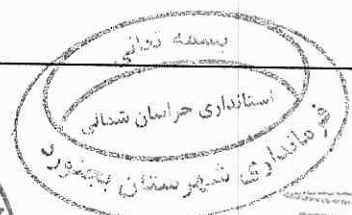 بسمه تعالی
استانداری خراسان شمالی
فرمانداری شهرستان بجنورد